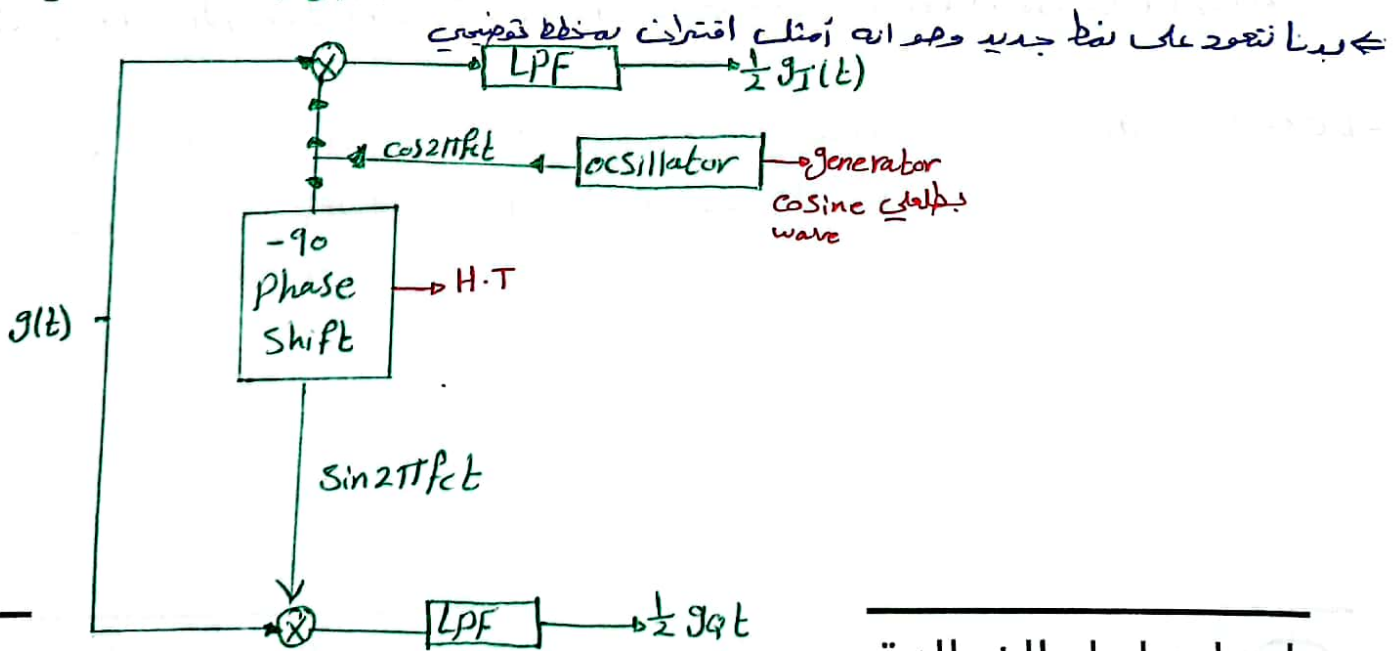 ⇐ بدنا نتعود على نمط جديد وهو انه أمثل اقتران بمخطط توضيحي
X
LPF
½ gI(t)
cos2πfct
ocsillator
generator
بطلعلي cosine
wave
-90
Phase
Shift
H.T
g(t)
Sin2πfct
X
LPF
½ gQ t